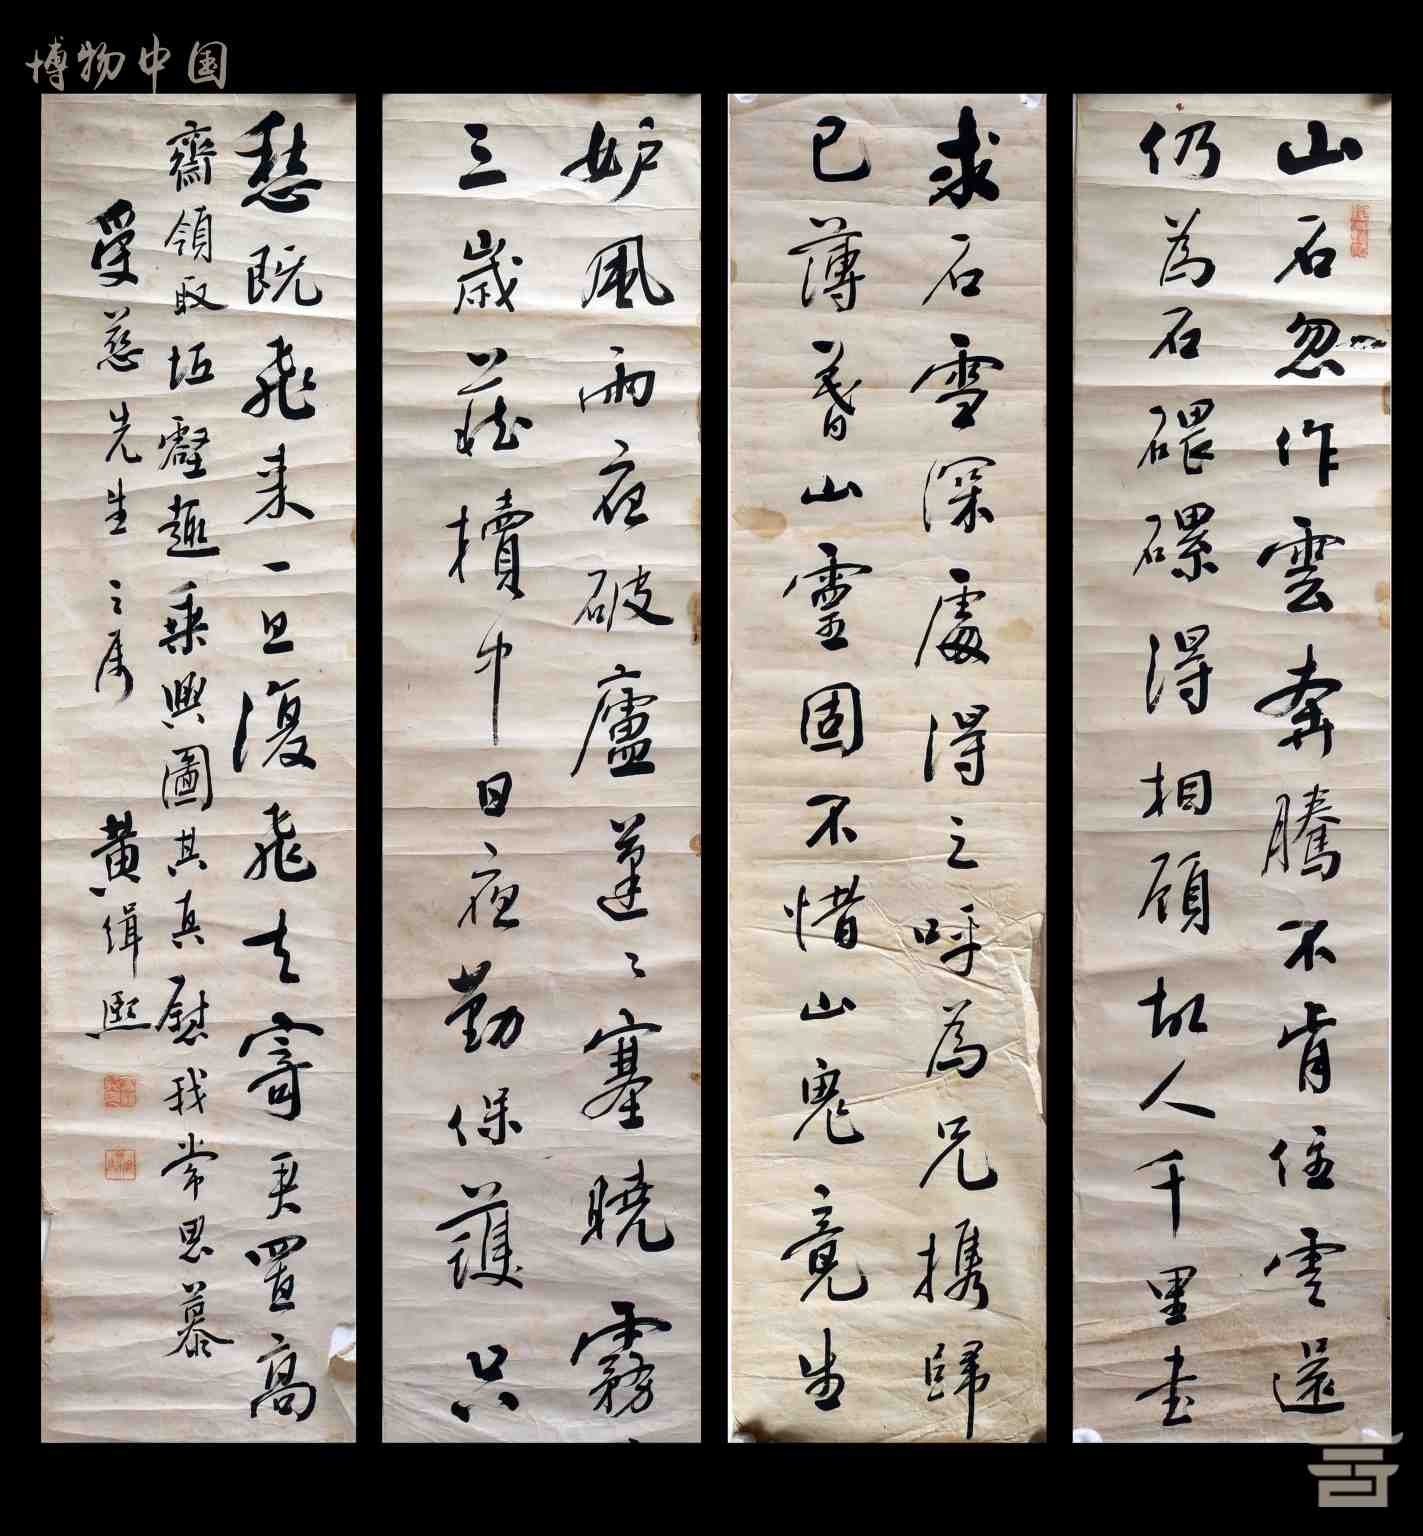 博物中国
山石忽作雲奔騰不肯住雲還
仍為石磈磥得相顧故人千里書
求石雪深處得之呼為兄攜歸
已薄暮山靈固不惜山鬼竟生
妒風雨夜破廬蓬〻塞曉霧
三歲藏櫝中日夜勤保護只
愁既飛来一旦復飛去寄君置高
齋領取丘壑趣乗興圖其真慰我常思慕
受慈先生之属 黄緝熙